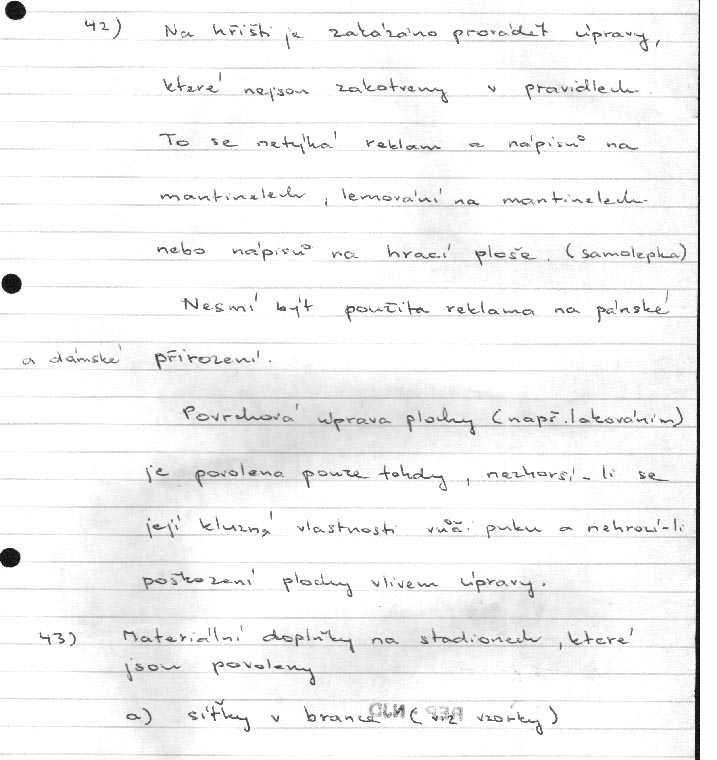 42) Na hřišti je zakázáno provádět úpravy,
které nejsou zakotveny v pravidlech.
To se netýká reklam a nápisů na
mantinelech, lemování na mantinelech
nebo nápisů na hrací ploše. (samolepka)
Nesmí být použita reklama na pánské
a dámské přirození.
Povrchová úprava plochy (např. lakováním)
je povolena pouze tehdy, nezhorší-li se
její kluzná vlastnosti vůči puku a nehrozí-li
poškození plochy vlivem úpravy.
43) Materiální doplňky na stadionech, které
jsou povoleny
a) síťky v brance (viz vzorky)